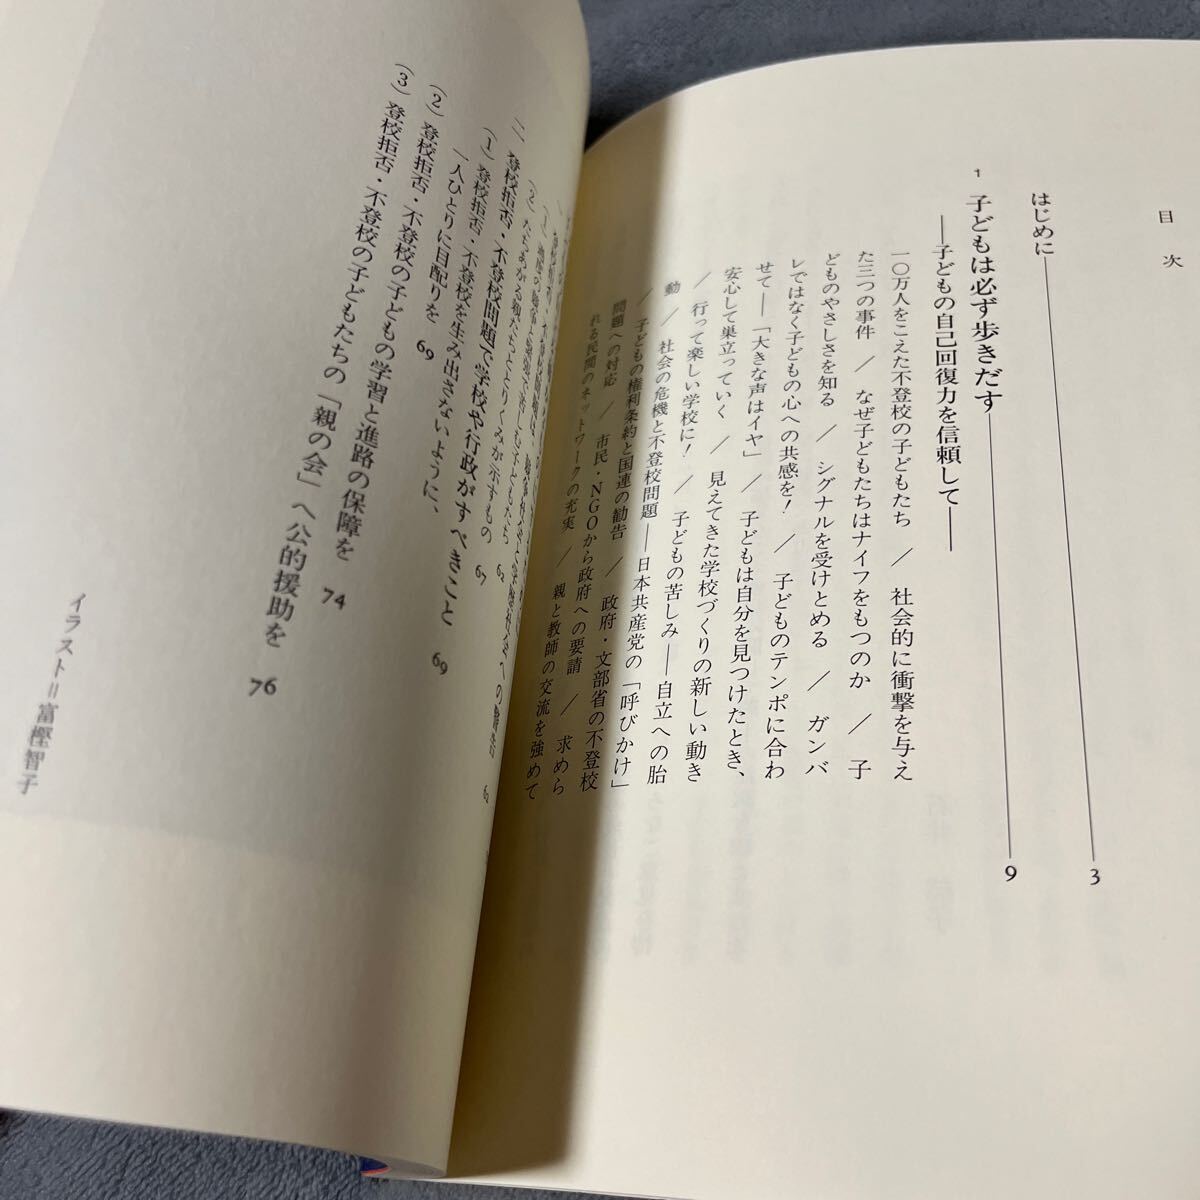 目次
はじめに 3
1 子どもは必ず歩きだす 9
――子どもの自己回復力を信頼して――
一〇万人をこえた不登校の子どもたち ／ 社会的に衝撃を与え
た三つの事件 ／ なぜ子どもたちはナイフをもつのか ／ 子
どものやさしさを知る ／ シグナルを受けとめる ／ ガンバ
レではなく子どもの心への共感を! ／ 子どものテンポに合わ
せて――「大きな声はイヤ」 ／ 子どもは自分を見つけたとき、
安心して巣立っていく ／ 見えてきた学校づくりの新しい動き
／ 行って楽しい学校に! ／ 子どもの苦しみ――自立への胎
動 ／ 社会の危機と不登校問題――日本共産党の「呼びかけ」
／ 子どもの権利条約と国連の勧告 ／ 政府・文部省の不登校
問題への対応 ／ 市民・NGOから政府への要請 ／ 求めら
れる民間のネットワークの充実 ／ 親と教師の交流を強めて
62
62
(2) たちあがる親たちととりくみが示すもの 67
二 登校拒否・不登校問題で学校や行政がすべきこと 69
(1) 登校拒否・不登校を生み出さないように、
一人ひとりに目配りを 69
(2) 登校拒否・不登校の子どもの学習と進路の保障を 74
(3) 登校拒否・不登校の子どもたちの「親の会」へ公的援助を 76
イラスト＝富樫智子